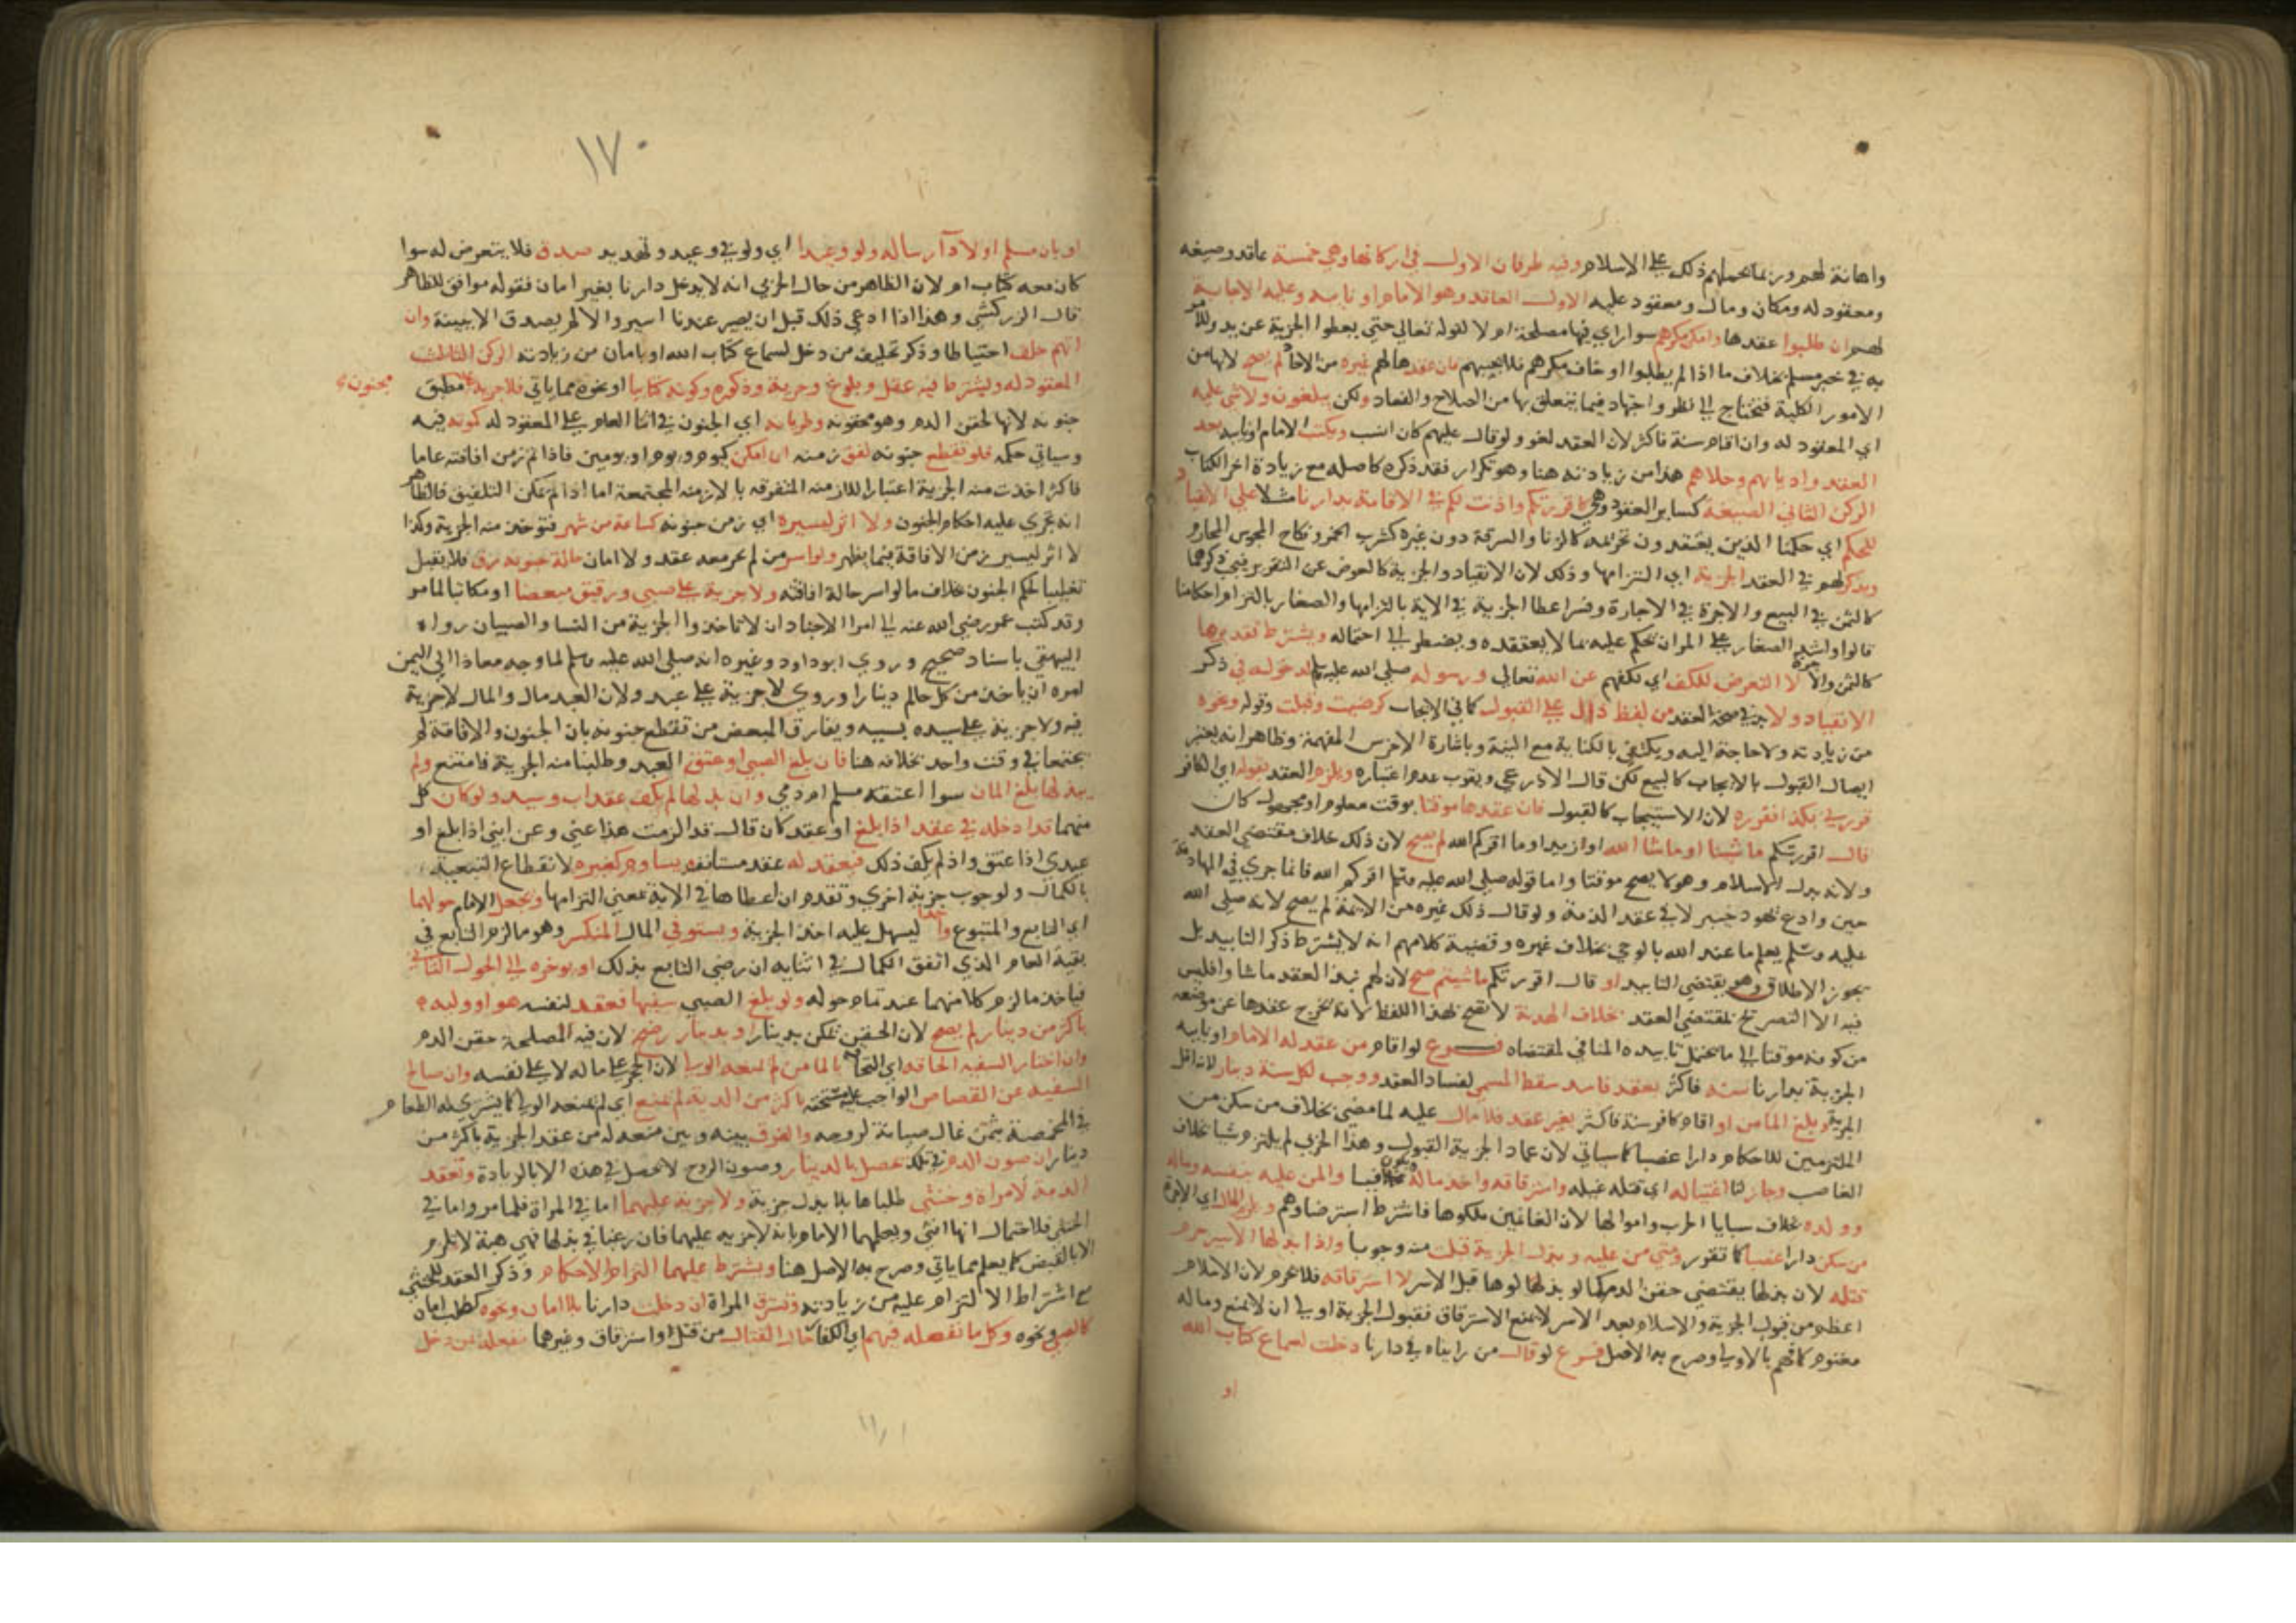 واهانة لهم وربما يحملهم ذلك على الاسلام وفيه طرفان الاول في اركانها وهي خمسة عاقد وصيغه
ومعقود له ومكان ومال ومعقود عليه الاول العاقد وهو الامام او نايبه وعليه الاجابة
لهم ان طلبوا عقدها وامن مكرهم سوا راي فيها مصلحة ام لا لقوله تعالى حتى يعطوا الجزية عن يد وللامر
به في خبر مسلم بخلاف ما اذا لم يطلبوا او خاف مكرهم فلا يجيبهم فان عقدها لهم غيره من الاحاد لم يصح لانها من
الامور الكلية فتحتاج الى نظر واجتهاد فيما يتعلق بها من الصلاح والفساد ولكن يبلغون ولا شي عليه
اي المعقود له وان اقام سنة فاكثر لان العقد لغو ولو قال عليهم كان انسب ويكتب الامام او نايبه بعد
العقد واديانهم وحلاهم هذا من زيادته هنا وهو تكرار فقد ذكره كاصله مع زيادة اخر الكتاب
الركن الثاني الصيغة كساير العقود وهي كاقررتكم واذنت لكم في الاقامة بدارنا مثلا على الانقياد
للحكم اي حكمنا الذين يعتقدون تحريمه كالزنا والسرقة دون غيره كشرب الخمر ونكاح المجوس المحارم
ويذكر لهم في العقد الجزية اي التزامها وذلك لان الانقياد والجزية كالعوض عن التقرير فيجب ذكرهما
كالثمن في البيع والاجرة في الاجارة وفسر اعطا الجزية في الاية بالتزامها والصغار بالتزام احكامنا
قالوا واشد الصغار على المرا ان يحكم عليه بما لا يعتقده ويضطر الى احتماله ويشترط تقديرها
كالثمن والاجرة لا التعرض للكف اي لكفهم عن الله تعالى ورسوله صلى الله عليه وسلم لدخوله في ذكر
الانقياد ولا بد في صحة العقد من لفظ دال على القبول كما في الايجاب كرضيت وقبلت وقوله ونحوه
من زيادته ولا حاجة اليه ويكتفي بالكناية مع النية وباشارة الاخرس المفهمة وظاهر انه يعتبر
ايصال القبول بالايجاب كالبيع لكن قال الاذرعي ويقرب عدم اعتباره ويلزم العقد بقوله اي الكافر
قررني بكذا فقرره لان الاستيجاب كالقبول فان عقدها موقتا بوقت معلوم او مجهول كان
قال اقررتكم ما شينا او ما شا الله او ازيد او ما اقركم الله لم يصح لان ذلك خلاف مقتضى العقد
ولانه بدل الاسلام وهو لا يصح موقتا واما قوله صلى الله عليه وسلم اقركم الله فانما جري في المهادنة
حين وادع يهود خيبر لا في عقد الذمة ولو قال ذلك غيره من الايمة لم يصح لانه صلى الله
عليه وسلم يعلم ما عند الله بالوحي بخلاف غيره وقضية كلامهم انه لا يشترط ذكر التابيد بل
يجوز الاطلاق وهو يقتضي التابيد او قال اقررتكم ما شيتم صح لان لهم نبذ العقد ما شاوا فليس
فيه الا التصريح بمقتضى العقد بخلاف الهدنة لا تصح بهذا اللفظ لانه يخرج عقدها عن موضعه
من كونه موقتا الى ما يحتمل تابيده المنافي لمقتضاه فــرع لو اقام من عقد له الامام او نايبه
الجزية بدارنا سنة فاكثر بعقد فاسد سقط المسمى لفساد العقد ووجب لكل سنة دينار لانه اقل
الجزية ويبلغ المامن او اقام كافر سنة فاكثر بغير عقد فلا مال عليه لما مضى بخلاف من سكن من
الملتزمين للاحكام دارا غصبا كما سياتي لان عماد الجزية القبول وهذا الحربي لم يلتزم شيا بخلاف
الغاصب وجاز لنا اغتياله اي قتله غيلة واسترقاقه واخذ ماله ويكون فيا والمن عليه بنفسه وماله
وولده بخلاف سبايا الحرب واموالها لان الغانمين ملكوها فاشترط استرضاوهم اي الاجرة
من سكن دارا غصبا كما تقرر ومتى من عليه وبذل الجزية قبلت منه وجوبا واذا بذلها الاسير حرم
قتله لان بذلها يقتضي حقن الدم كما لو بذلها قبل الاسر لا استرقاقه فلا يحرم لان الاسلام
اعظم من قبول الجزية والاسلام بعد الاسر لا يمنع الاسترقاق فقبول الجزية اولى ان لا يمنع وماله
مغنوم كما فهم بالاولى وصرح به الاصل فــرع لو قال من رايناه في دارنا دخلت لسماع كتاب الله
او
١٧٠
او بان مسلم او لادا رساله ولو وعيدا اي ولو في وعيد وتهديد صدق فلا يتعرض له سوا
كان معه كتاب ام لا لان الظاهر من حال الحربي انه لا يدخل دارنا بغير امان فقوله موافق للظاهر
قال الزركشي وهذا اذا ادعى ذلك قبل ان يصير عندنا اسيرا والا لم يصدق الا ببينة وان
اتهم حلف احتياطا وذكر تحليف من دخل لسماع كتاب الله او بامان من زيادته الركن الثالث
المعقود له ويشترط فيه عقل وبلوغ وحرية وذكوره وكونه كتابيا او نحوه مما ياتي فلا جزية على مطبق
مجنون
جنونه لانها لحقن الدم وهو محقونه وطريانه اي الجنون في اثنا العام على المعقود له كموته فيه
وسياتي حكمه فلو تقطع جنونه لفق زمنه ان امكن كيوم ويوم او يومين فاذا تم زمن افاقته عاما
فاكثر اخذت منه الجزية اعتبارا للازمنه المتفرقه بالازمنه المجتمعة اما اذا لم يمكن التلفيق فالظاهر
انه تجري عليه احكام الجنون ولا اثر ليسيره اي زمن جنونه كساعة من شهر فتوخذ منه الجزية وكذا
لا اثر ليسير زمن الافاقة فيما يظهر ولو اسر من لم يجر معه عقد ولا امان حالة جنونه رق فلا يقبل
تغليبا لحكم الجنون بخلاف ما لو اسر حالة افاقته ولا جزية على صبي ورقيق مبعضا او مكاتبا لما مر
وقد كتب عمر رضي الله عنه الى امرا الاجناد ان لا تاخذوا الجزية من النسا والصبيان رواه
البيهقي باسناد صحيح وروي ابو داود وغيره انه صلى الله عليه وسلم لما وجه معاذا الى اليمن
امره ان ياخذ من كل حالم دينارا وروي لا جزية على عبد ولان العبد مال والمال لا جزية
فيه ولا جزية على سيده بسببه ويفارق المبعض من تقطع جنونه بان الجنون والافاقة لم
يجتمعا في وقت واحد بخلافه هنا فان بلغ الصبي او عتق العبد وطلبنا منه الجزية فامتنع ولم
يبذلها بلغ المامن سوا اعتقه مسلم ام ذمي وان بذلها لم يكف عقد اب وسيد ولو كان كل
منهما قد ادخله في عقد اذا بلغ او عتق كان قال قد الزمت هذا عني وعن ابني اذا بلغ او
عبدي اذا عتق واذ لم يكف ذلك فيعقد له عقد مستانف يساوم كغيره لانقطاع التبعية
بالكمال ولوجوب جزية اخري وتقدم ان اعطاها في الاية بمعنى التزامها ويجعل الامام حولهما
اي التابع والمتبوع واحدا ليسهل عليه اخذ الجزية ويستوفي المال المنكسر وهو ما لزم التابع في
بقية العام الذي اتفق الكمال في اثنايه ان رضي التابع بذلك او يوخره الى الحول الثاني
فياخذ ما لزم كلا منهما عند تمام حوله ولو بلغ الصبي سفيها فعقد لنفسه هو او وليه
باكثر من دينار لم يصح لان الحقن ممكن بدينار او بدينار رضخ لان فيه المصلحة حقن الدم
وان اختار السفيه الحاقه اي التحاقه بالمامن لم يمنعه الولي لان الحجر على ماله لا على نفسه وان صالح
السفيه عن القصاص الواجب عليه مستحقه باكثر من الدية لم يمنع اي لم يمنعه الولي كما يشتري له الطعام
في المخمصة بثمن غال صيانة لروحه والفرق بينه وبين منعه له من عقد الجزية باكثر من
دينار ان صون الدم في تلك يحصل بالدينار وصون الروح لا يحصل في هذه الا بالزيادة وتعقد
الذمة لامراة وخنثى طلباها بلا بذل جزية ولا جزية عليهما اما في المراة فلما مر واما في
الخنثى فلاحتمال انها انثى ويعلمهما الامام بانه لا جزية عليهما فان رغبا في بذلها فهي هبة لا تلزم
الا بالقبض كما يعلم مما ياتي وصرح به الاصل هنا ويشترط عليهما التزام الاحكام وذكر العقد للخنثى
مع اشتراط الالتزام عليه من زيادته وتسترق المراة ان دخلت دارنا بلا امان ونحوه كطلب امان
كالصبي ونحوه وكل ما نفعله فيهم اي الكفار حال القتال من قتل او استرقاق وغيرهما نفعله بمن دخل